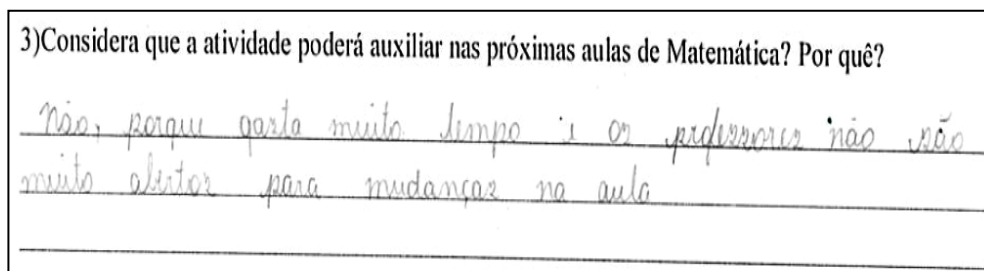 3)Considera que a atividade poderá auxiliar nas próximas aulas de Matemática? Por quê?
não, porque gasta muito tempo i os professores não são
muito abertos para mudanças na aula